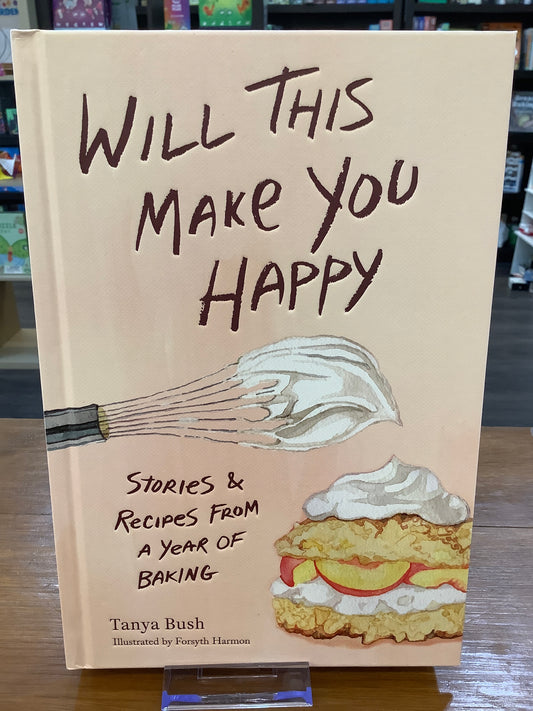 WILL THIS
MAKE YOU
HAPPY
STORIES &
RECIPES FROM
A YEAR OF
BAKING
Tanya Bush
Illustrated by Forsyth Harmon